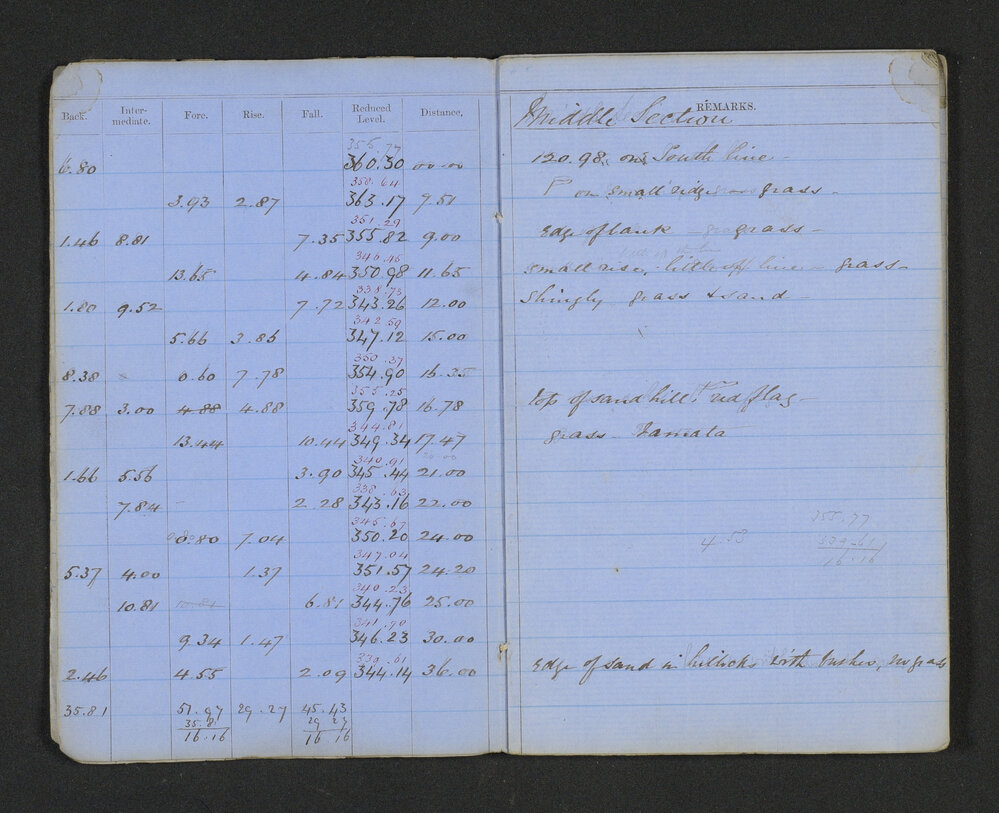 Back. Inter-mediate. Fore. Rise. Fall. Reduced Level. Distance.
355.77
6.80 360.30 00.00
350.64
3.93 2.87 363.17 9.51
351.29
1.46 8.81 7.35 355.82 9.00
346.45
13.65 4.84 350.98 11.65
338.73
1.80 9.52 7.72 343.26 12.00
342.59
5.66 3.86 347.12 15.00
350.37
8.38 0.60 7.78 354.90 16.35
355.25
7.88 3.00 4.88 4.88 359.78 16.78
344.81
13.44 10.44 349.34 17.47
340.91 20.00
1.66 5.56 3.90 345.44 21.00
338.63
7.84 2.28 343.16 22.00
345.67
0.80 7.04 350.20 24.00
347.04
5.37 4.00 1.37 351.57 24.20
340.23
10.81 10.81 6.81 344.76 25.00
341.70
9.34 1.47 346.23 30.00
339.61
2.46 4.55 2.09 344.14 36.00
35.81 51.97 29.27 45.43
35.81 29.27
16.16 16.16
REMARKS.
Middle Section
120.98 on South line -
P on small ridge grass -
Edge of bank - grass -
small rise, little off line - grass -
Shingly grass & sand -
top of sand hill. red flag -
grass - Tamata
355.77
4.53 339.61
16.16
Edge of sand in hillocks with bushes, no grass